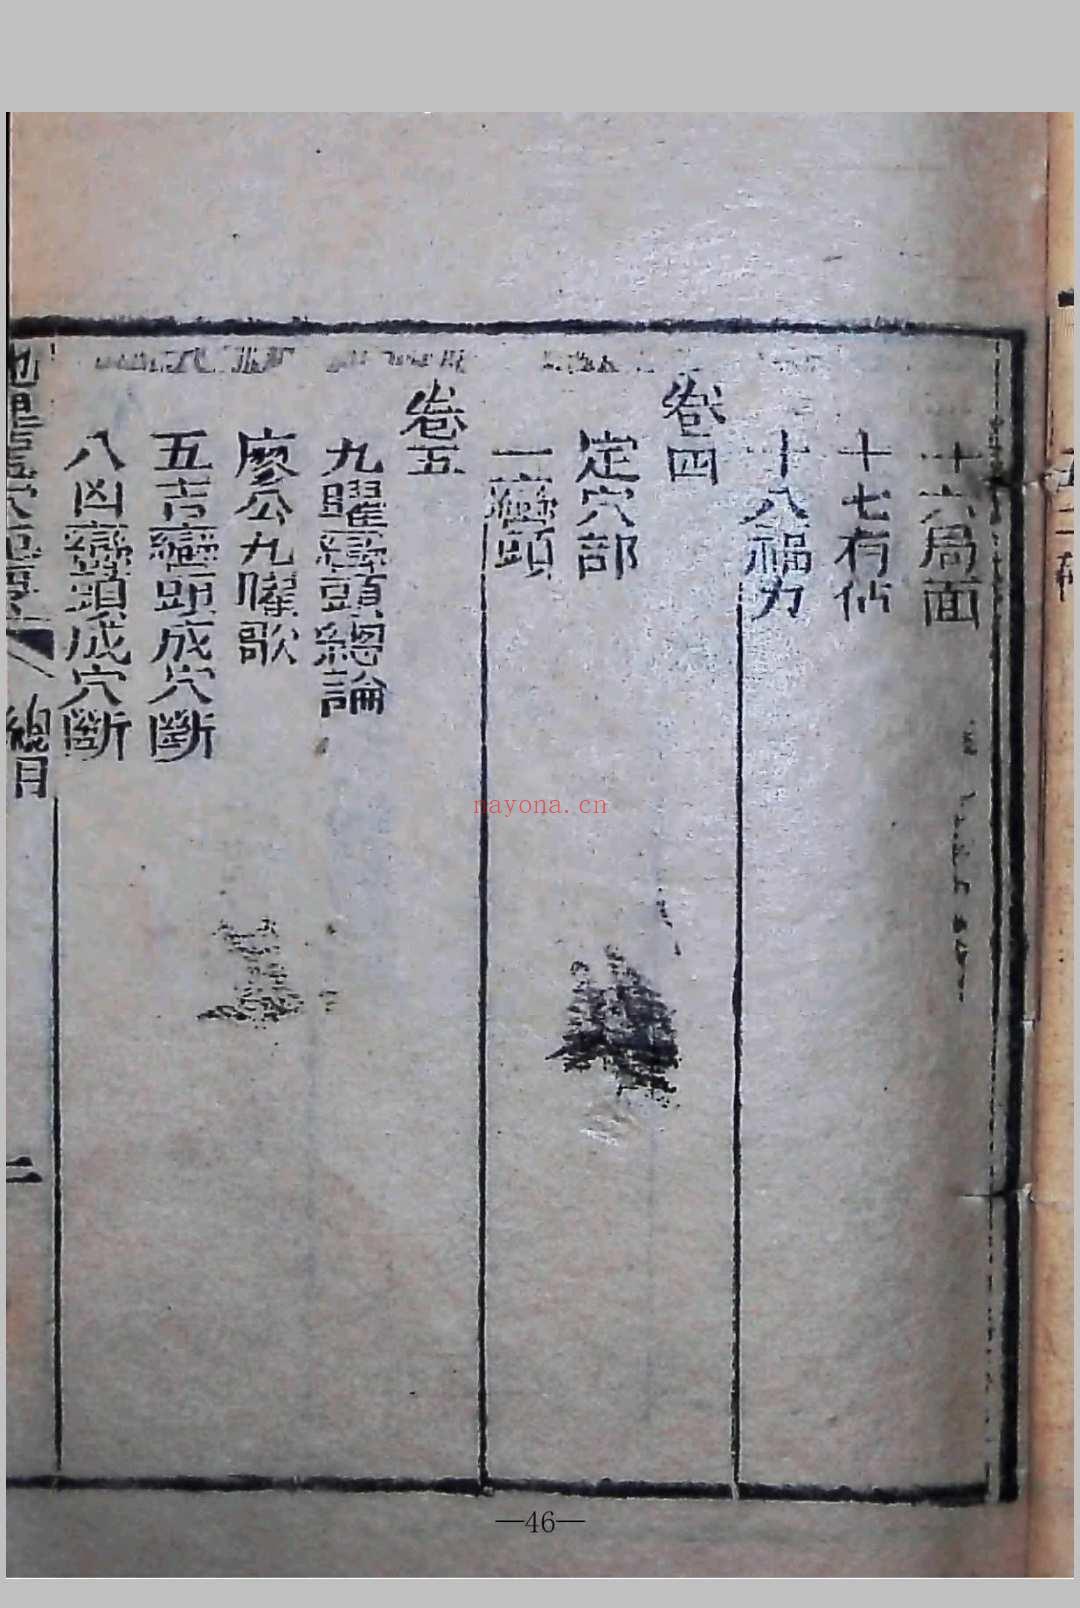 十六局面
十七有佔
十八福力
卷四
定穴部
一巒頭
卷五
九曜巒頭總論
廖公九曜歌
五吉巒頭成穴斷
八凶巒頭成穴斷
總目
二
nayona.cn
—46—